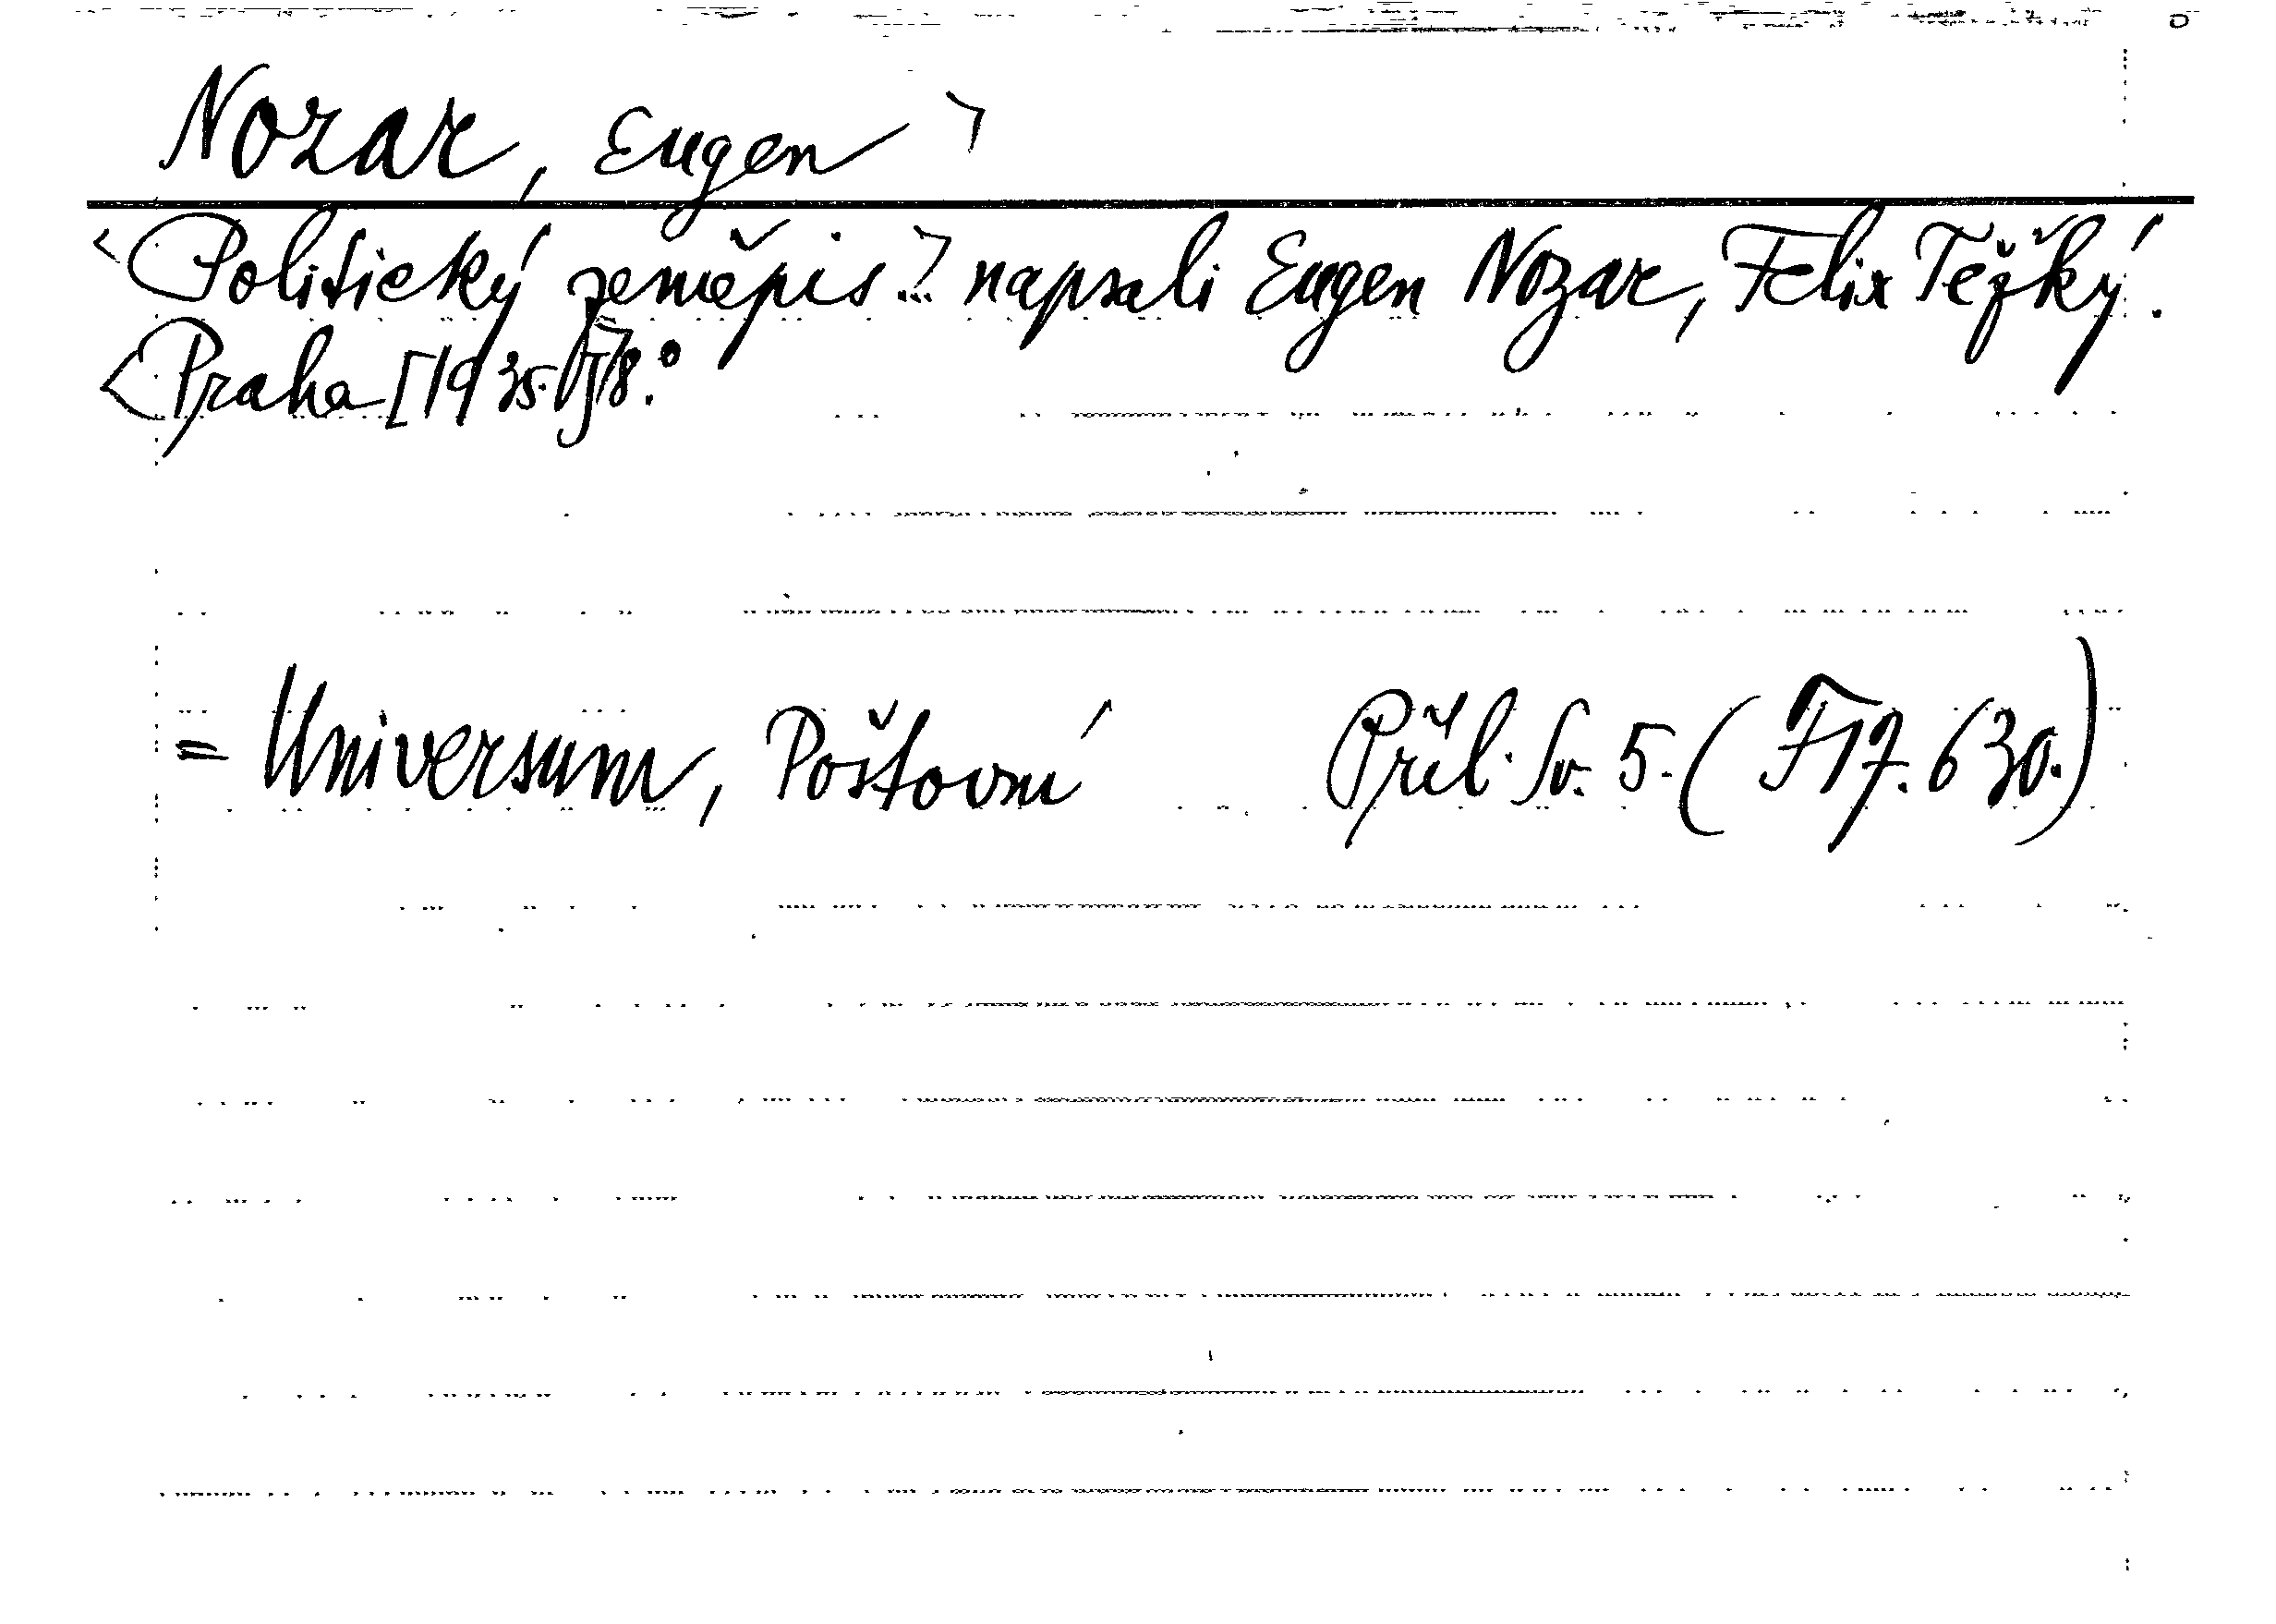 Nozar, Eugen ⌝
<Politický zeměpis...⌝ napsali Eugen Nozar, Felix Těžký.
<Praha [1935.] 8.°
= Universum, Poštovní Příl. Sv. 5. (F 17. 630.)